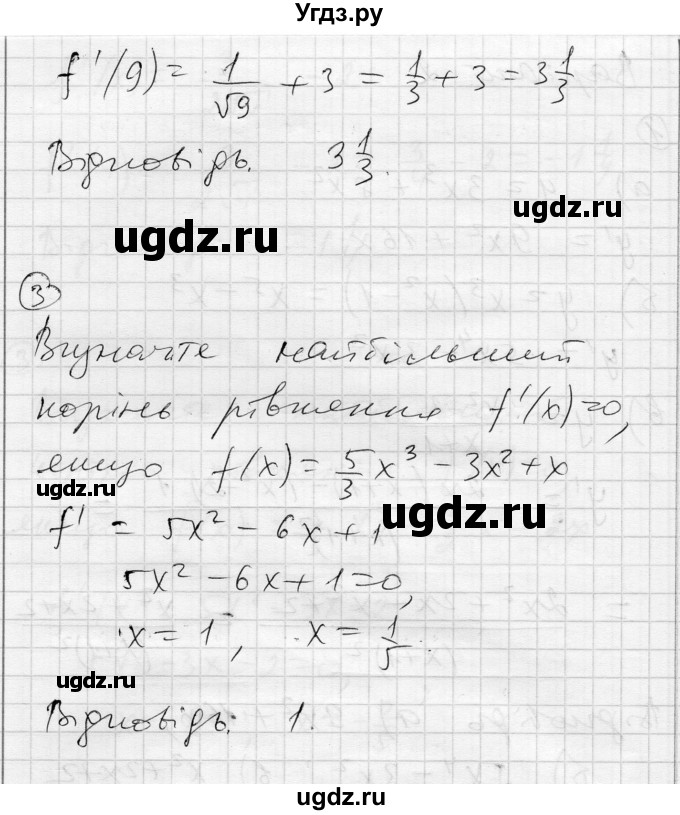 Угдз.ру
f'(9) = 1/√9 + 3 = 1/3 + 3 = 3 1/3
Відповідь. 3 1/3.
ugdz.ru
ugdz.ru
3
Визначте найбільший
корінь рівняння f'(x)=0,
якщо f(x) = 5/3 x³ - 3x² + x
ugdz.ru
ugdz.ru
f' = 5x² - 6x + 1
5x² - 6x + 1 = 0,
x = 1, x = 1/5.
ugdz.ru
Відповідь: 1.
ugdz.ru